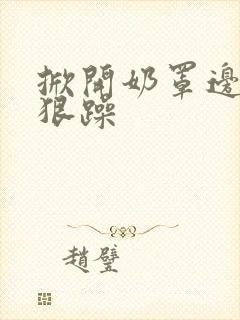 掀開奶罩邊
狠躁
趙璧